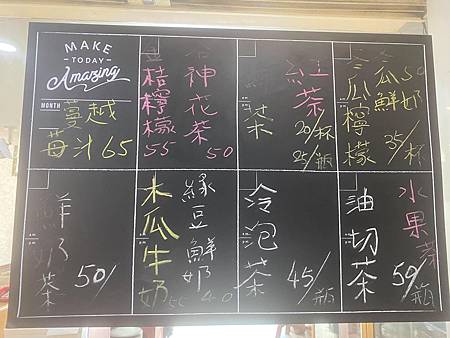 MAKE
TODAY
Amazing
MONTH
蔓越
莓汁65
金桔檸檬
55
洛神花茶
50
紅茶
20/杯
25/瓶
冬瓜鮮奶50
冬瓜檸檬
35/杯
鮮奶茶
50/
木瓜牛奶55
緣豆鮮奶
40
冷泡茶
45/瓶
水果茶
油切茶
59/瓶